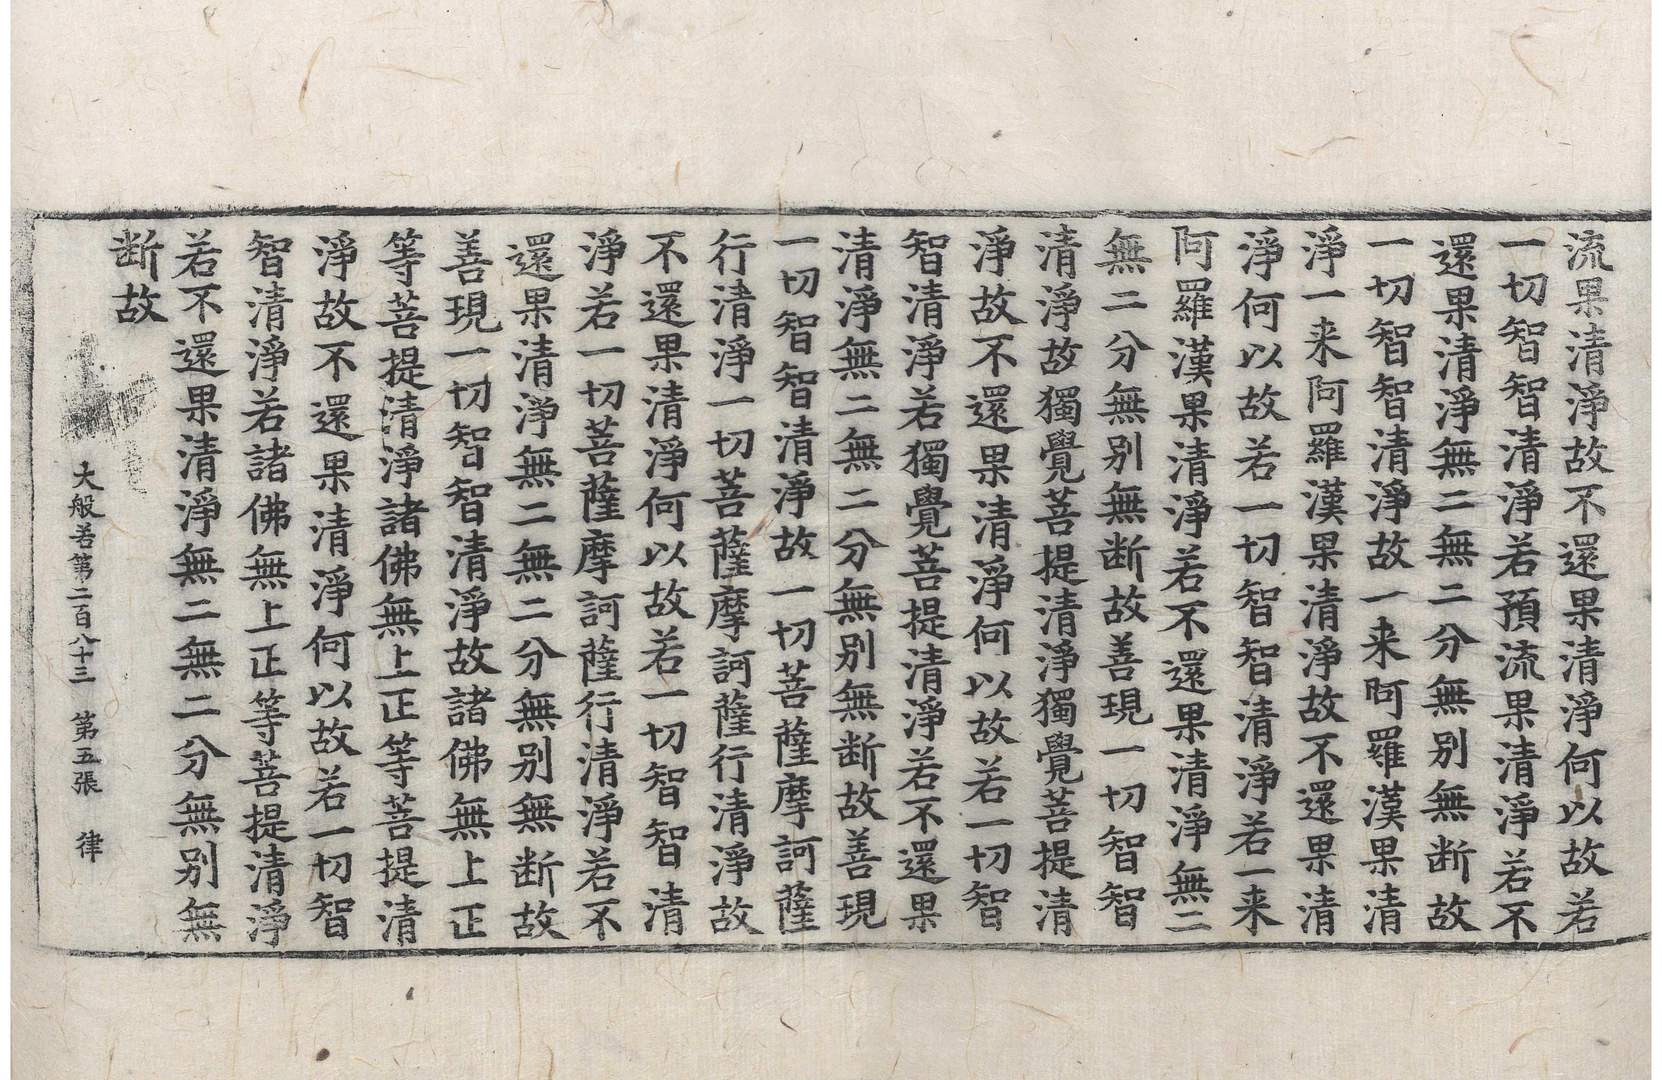 流果清淨故不還果清淨何以故若
一切智智清淨若預流果清淨若不
還果清淨無二無二分無别無断故
一切智智清淨故一来阿羅漢果清
淨一来阿羅漢果清淨故不還果清
淨何以故若一切智智清淨若一来
阿羅漢果清淨若不還果清淨無二
無二分無别無断故善現一切智智
清淨故獨覺菩提清淨獨覺菩提清
淨故不還果清淨何以故若一切智
智清淨若獨覺菩提清淨若不還果
清淨無二無二分無别無断故善現
一切智智清淨故一切菩薩摩訶薩
行清淨一切菩薩摩訶薩行清淨故
不還果清淨何以故若一切智智清
淨若一切菩薩摩訶薩行清淨若不
還果清淨無二無二分無别無断故
善現一切智智清淨故諸佛無上正
等菩提清淨諸佛無上正等菩提清
淨故不還果清淨何以故若一切智
智清淨若諸佛無上正等菩提清淨
若不還果清淨無二無二分無别無
断故
大般若第二百八十三 第五張 律